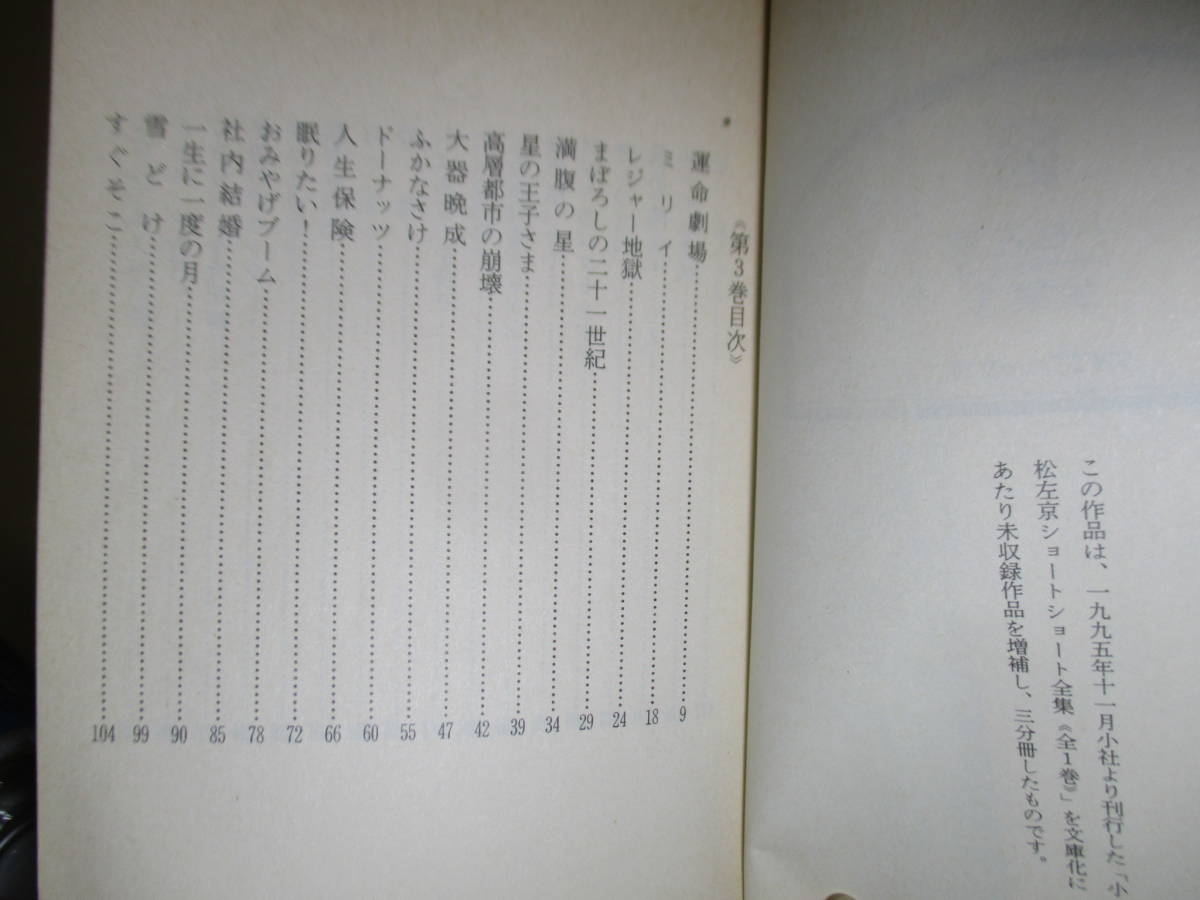 この作品は、一九九五年十一月小社より刊行した「小
松左京ショートショート全集《全1巻》」を文庫化に
あたり未収録作品を増補し、三分冊したものです。
《第3巻目次》
運命劇場 9
ミリイ 18
レジャー地獄 24
まぼろしの二十一世紀 29
満腹の星 34
星の王子さま 39
高層都市の崩壊 42
大器晩成 47
ふかなさけ 55
ドーナッツ 60
人生保険 66
眠りたい! 72
おみやげブーム 78
社内結婚 85
一生に一度の月 90
雪どけ 99
すぐそこ 104